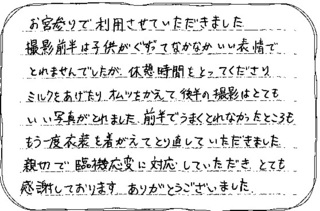 お宮参りで利用させていただきました
撮影前半は子供がぐずってなかなかいい表情で
とれませんでしたが、休憩時間をとってくださり
ミルクをあげたり、オムツをかえて後半の撮影はとても
いい写真がとれました。前半でうまくとれなかったところも
もう一度衣装を着がえてとり直していただきました
親切で臨機応変に対応していただき、とても
感謝しております ありがとうございました